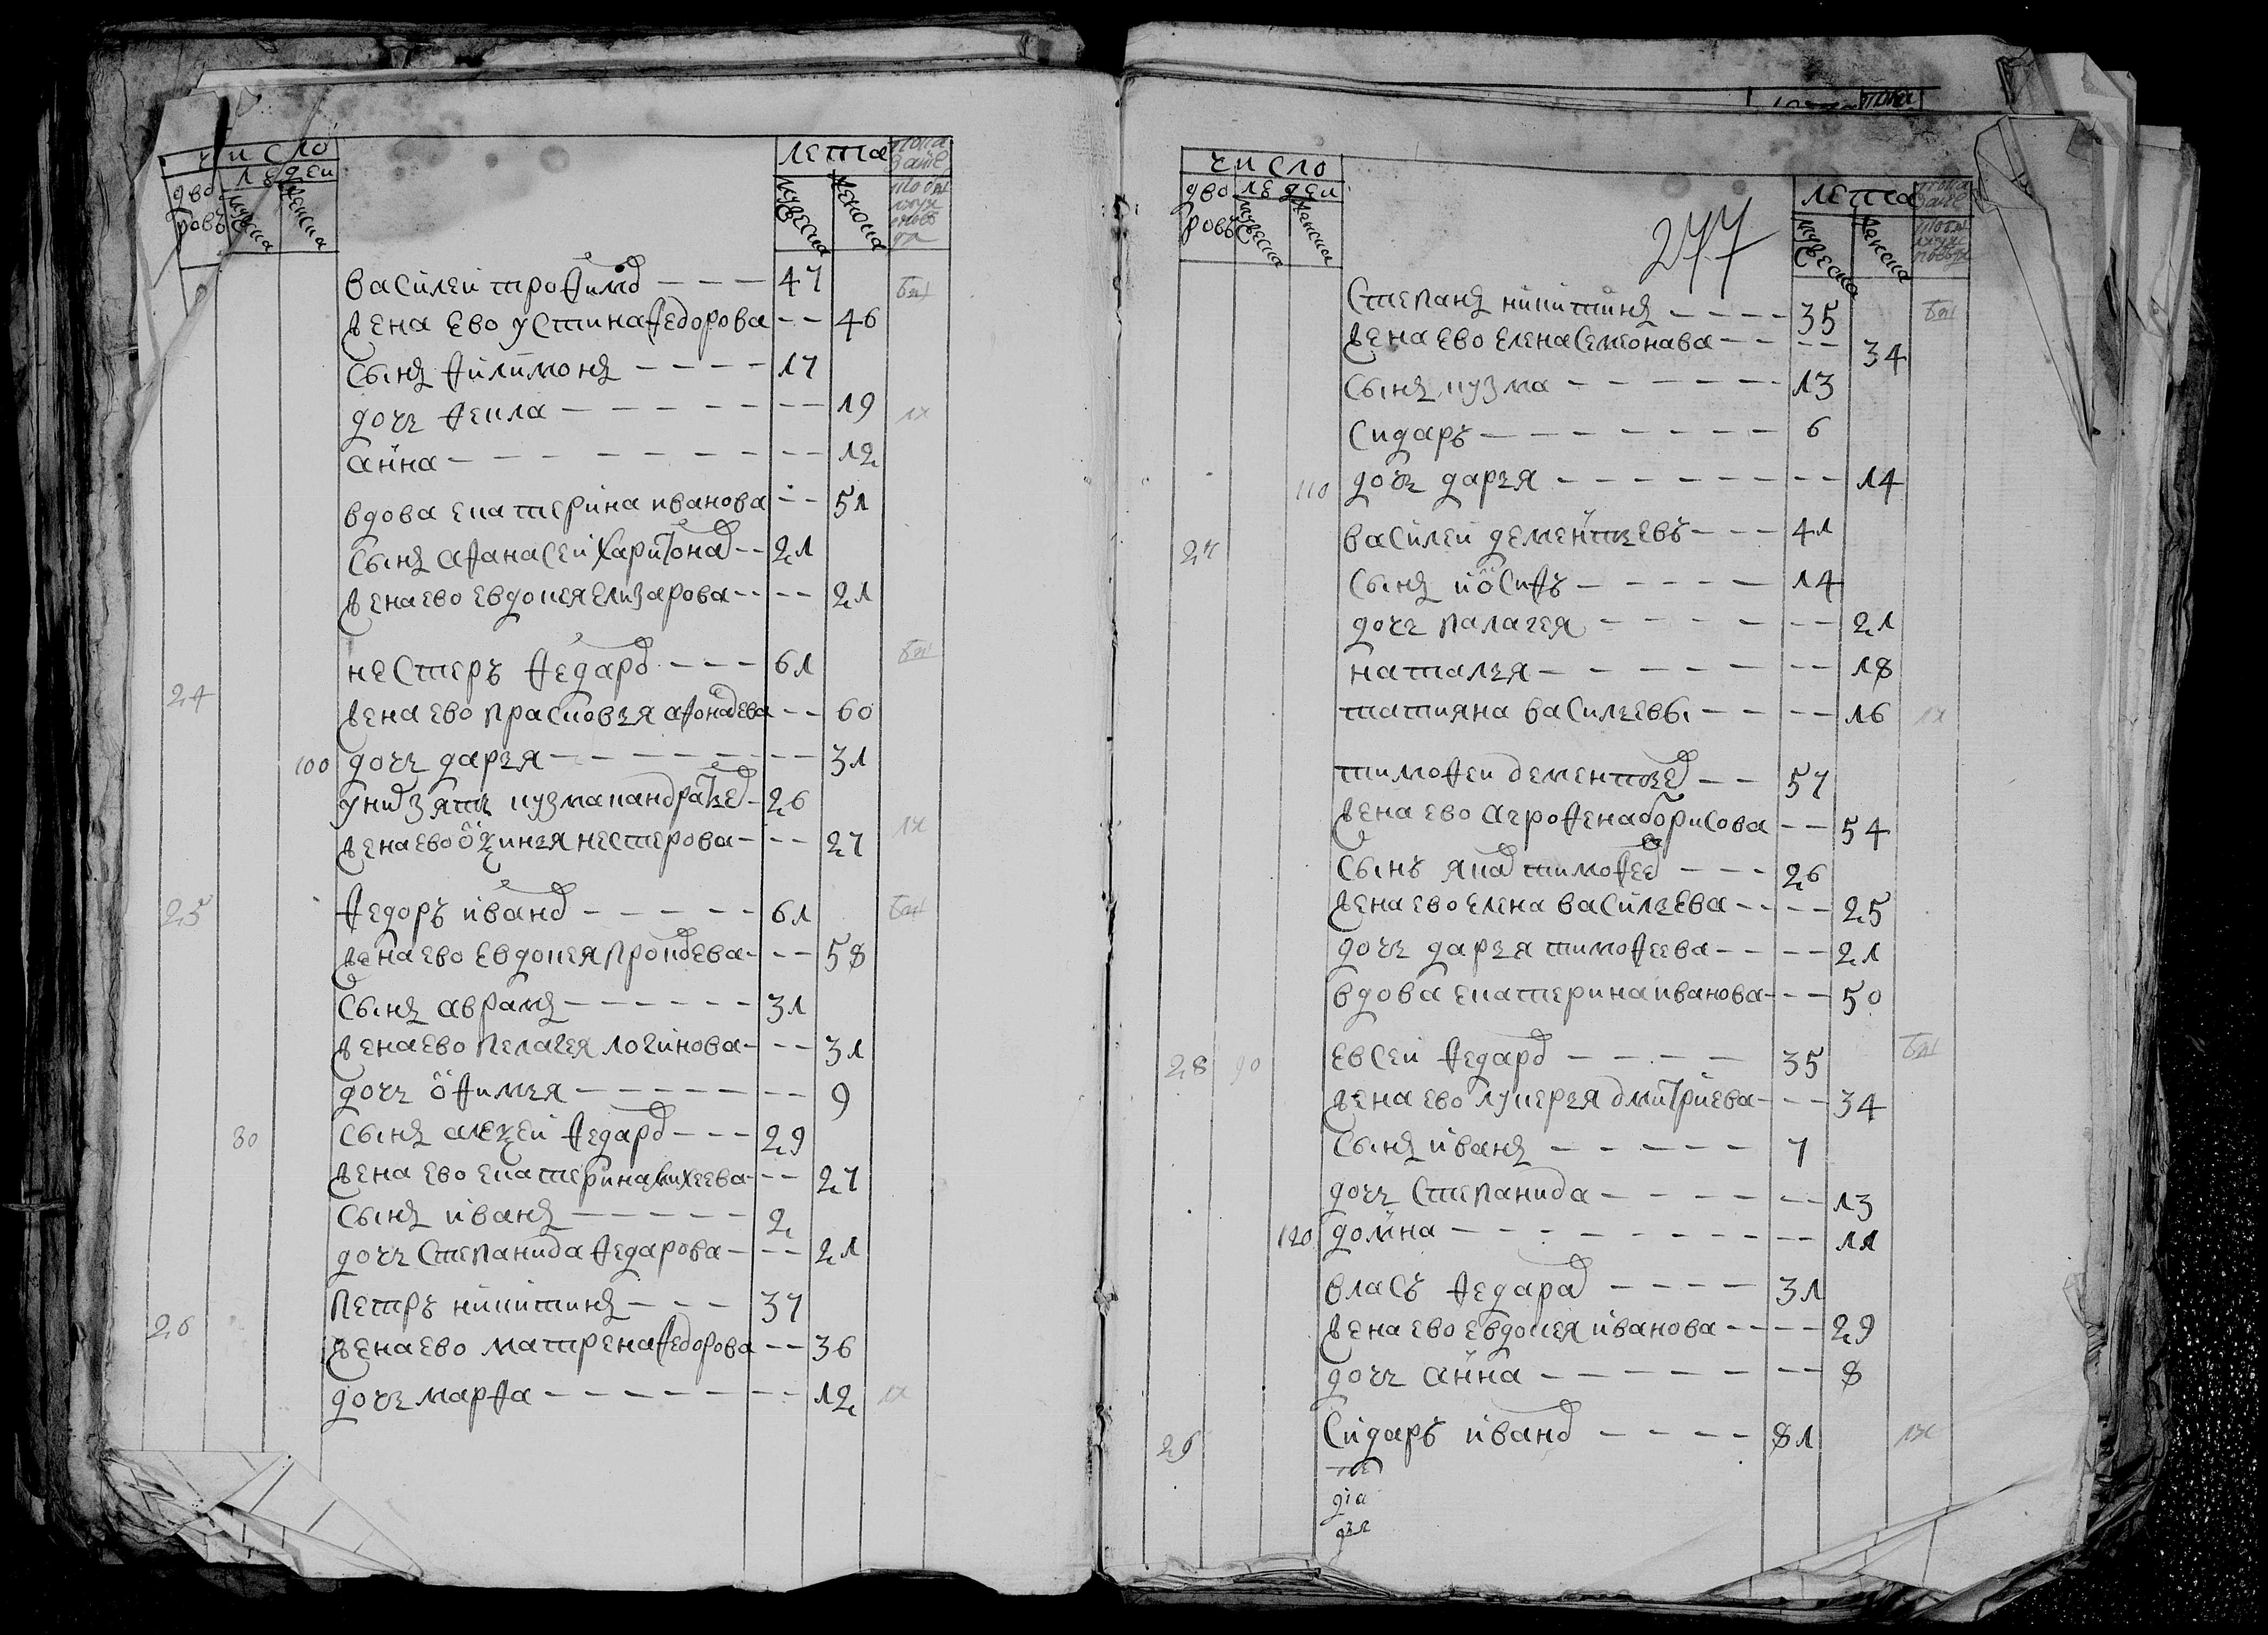 число
лета
дворовъ
людеи
мужеска
женска
мужеска
женска
василеи трофимов - - - 47
жена ево устина федорова - - 46
сынъ филимонъ - - - - 17
дочь фекла - - - - - - - - 19
анна - - - - - - - - - - 12
вдова екатерина иванова - - 51
сынъ афанасеи харитонов - - 21
жена ево евдокея елизарова - - - - 21
24 нестеръ федаров - - - 61
жена ево прасковья афонасева - - 60
100 дочь дарья - - - - - - - - 31
у нив зять кузма кандратьев - 26
жена ево оксинья нестерова - - - 27
25 федоръ иванов - - - - - 61
жена ево евдокея прокофева - - - 58
сынъ аврамъ - - - - - - 31
жена ево пелагея логинова - - - 31
дочь офимья - - - - - - - 9
80 сынъ алексеи федаров - - - 29
жена ево екатерина михеева - - - 27
сынъ иванъ - - - - - - 2
дочь степанида федарова - - - 21
26 петръ никитинъ - - - 37
жена ево матрена федорова - - 36
дочь марфа - - - - - - - - 12
число
лета
дворовъ
людеи
мужеска
женска
мужеска
женска
277
степанъ никитинъ - - - - 35
жена ево елена семеонава - - - - 34
сынъ кузма - - - - - - 13
сидаръ - - - - - - - - 6
110 дочь дарья - - - - - - - - 14
27 василеи дементьевъ - - - 41
сынъ иосифъ - - - - - 14
дочь палагея - - - - - - - 21
наталья - - - - - - - - 18
татияна васильевы - - - - 16
тимофеи дементьев - - 57
жена ево агрофена борисова - - 54
сынъ яков тимофеев - - - 26
жена ево елена васильева - - - - 25
дочь дарья тимофеева - - - - 21
вдова екатерина иванова - - - 50
28 90 евсеи федаров - - - - 35
жена ево лукерья дмитриева - - - 34
сынъ иванъ - - - - - - 7
дочь степанида - - - - - - - 13
120 домна - - - - - - - - - - 11
власъ федаров - - - - 31
жена ево евдокея иванова - - - - 29
дочь анна - - - - - - - - 8
29 сидаръ иванов - - - - 81